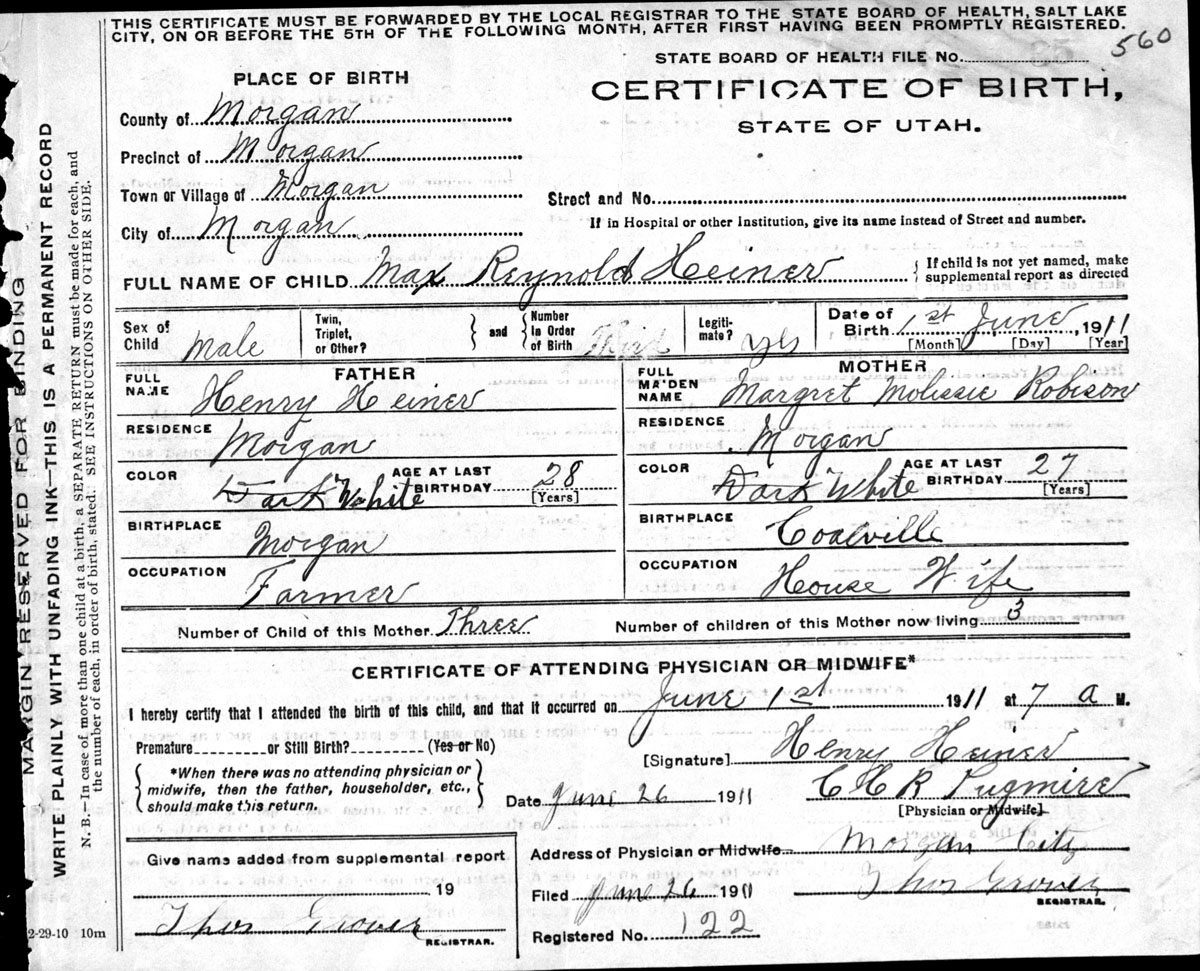 THIS CERTIFICATE MUST BE FORWARDED BY THE LOCAL REGISTRAR TO THE STATE BOARD OF HEALTH, SALT LAKE
CITY, ON OR BEFORE THE 5TH OF THE FOLLOWING MONTH, AFTER FIRST HAVING BEEN PROMPTLY REGISTERED.
560
STATE BOARD OF HEALTH FILE No.
PLACE OF BIRTH
CERTIFICATE OF BIRTH,
STATE OF UTAH.
County of Morgan
Precinct of Morgan
Town or Village of Morgan
Street and No.
City of Morgan
If in Hospital or other Institution, give its name instead of Street and number.
FULL NAME OF CHILD Max Reynold Heiner
{ If child is not yet named, make
supplemental report as directed
Sex of Child Male
Twin, Triplet, or Other?
} and { Number In Order of Birth Third
Legiti- mate? yes
Date of Birth 1st June, 1911
[Month] [Day] [Year]
FATHER
FULL NAME Henry Heiner
RESIDENCE Morgan
COLOR Dark White AGE AT LAST BIRTHDAY 28
[Years]
BIRTHPLACE Morgan
OCCUPATION Farmer
MOTHER
FULL MAIDEN NAME Margret Molissie Robison
RESIDENCE Morgan
COLOR Dark White AGE AT LAST BIRTHDAY 27
[Years]
BIRTHPLACE Coalville
OCCUPATION House Wife
Number of Child of this Mother Three Number of children of this Mother now living 3
CERTIFICATE OF ATTENDING PHYSICIAN OR MIDWIFE*
I hereby certify that I attended the birth of this child, and that it occurred on June 1st 1911 at 7 a M.
Premature or Still Birth? (Yes or No)
[Signature] Henry Heiner
{ *When there was no attending physician or
midwife, then the father, householder, etc.,
should make this return. }
Date June 26 1911
C H R Pugmire
[Physician or Midwife]
Address of Physician or Midwife Morgan City
Filed June 26 1911 Thos Grover
REGISTRAR.
Registered No. 122
Give name added from supplemental report
19
Thos Grover
REGISTRAR.
2-29-10 10m
MARGIN RESERVED FOR BINDING
WRITE PLAINLY WITH UNFADING INK—THIS IS A PERMANENT RECORD
N. B.—In case of more than one child at a birth, a SEPARATE RETURN must be made for each, and
the number of each, in order of birth, stated. SEE INSTRUCTIONS ON OTHER SIDE.